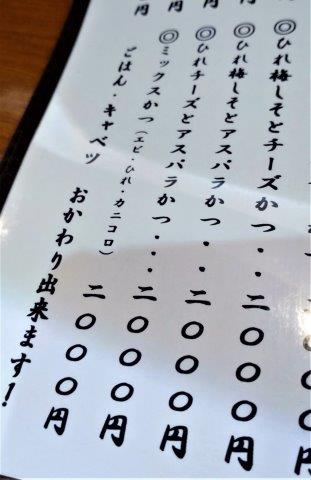 ◎ひれ梅しそとチーズかつ・・二〇〇〇円
◎ひれ梅しそとアスパラかつ・・二〇〇〇円
◎ひれチーズとアスパラかつ・・・二〇〇〇円
◎ミックスかつ(エビ・ひれ・カニコロ)二〇〇〇円
ごはん・キャベツ おかわり出来ます!